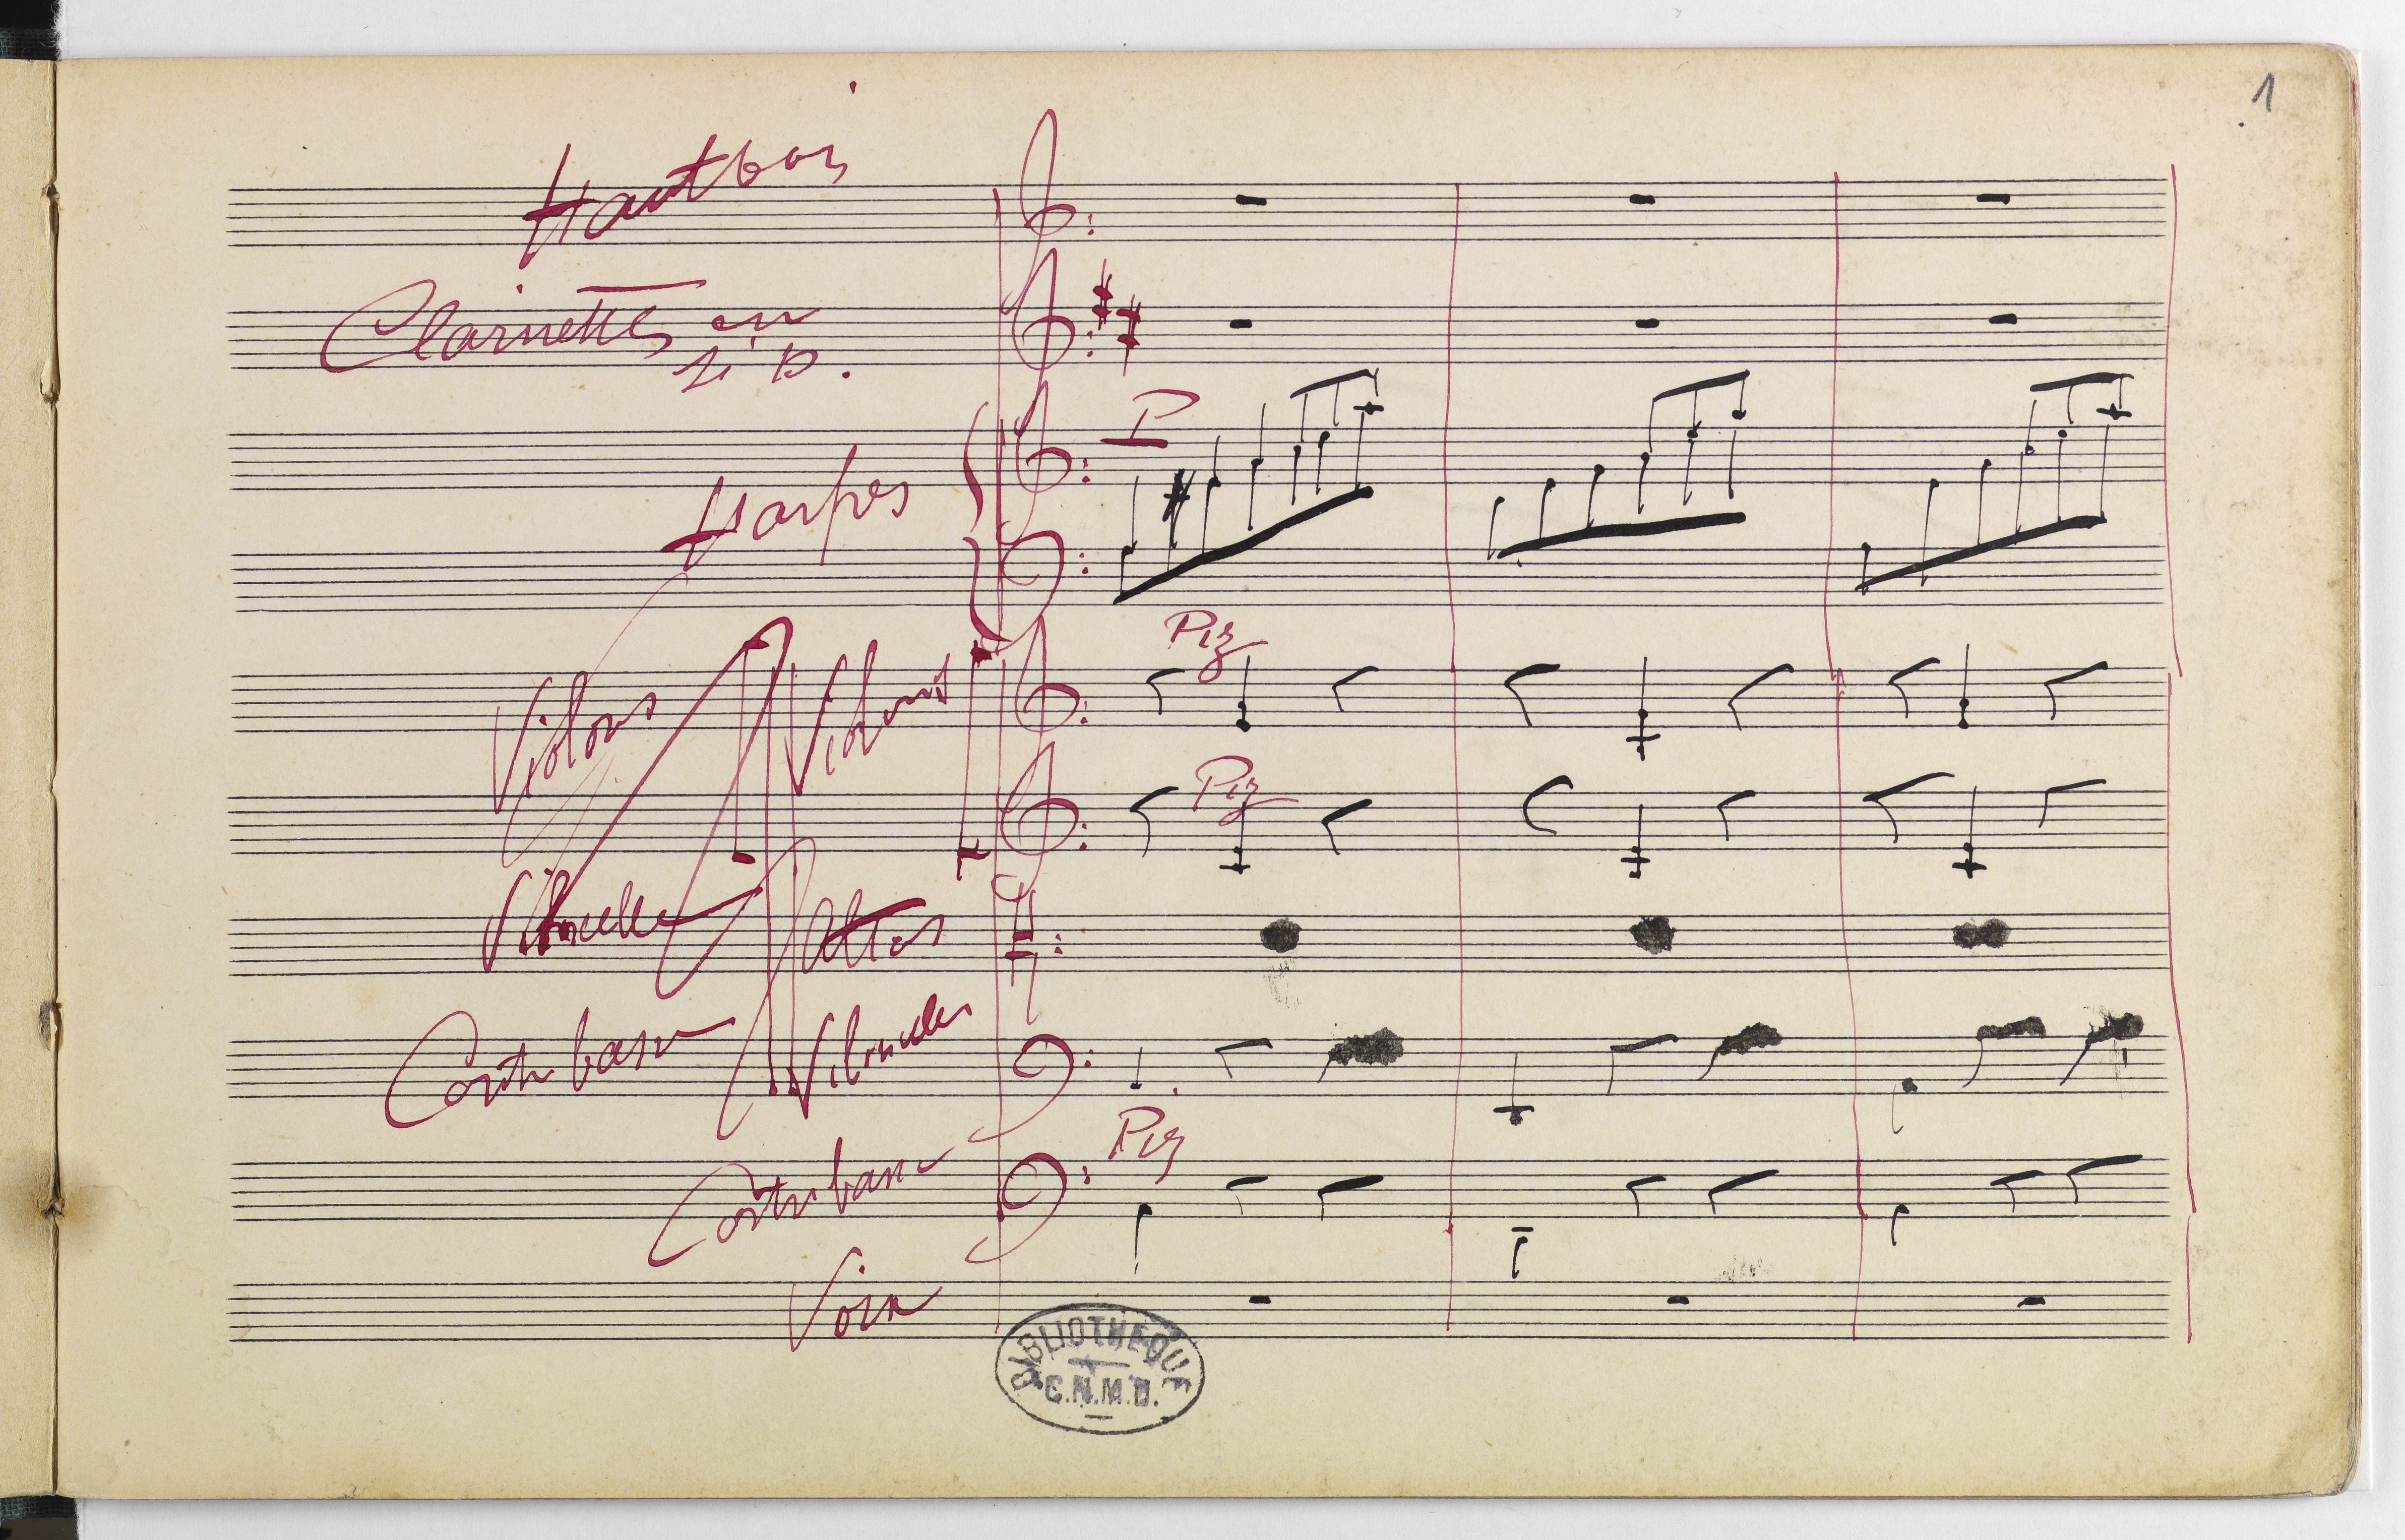 1
Hautbois
Clarinettes en
si b.
P
Harpes
Piz
Violons
Violons
Piz
Violoncelle
Altos
Contrebasse
Violoncelles
Piz
Contrebasse
Voix
BIBLIOTHEQUE
C.N.M.D.